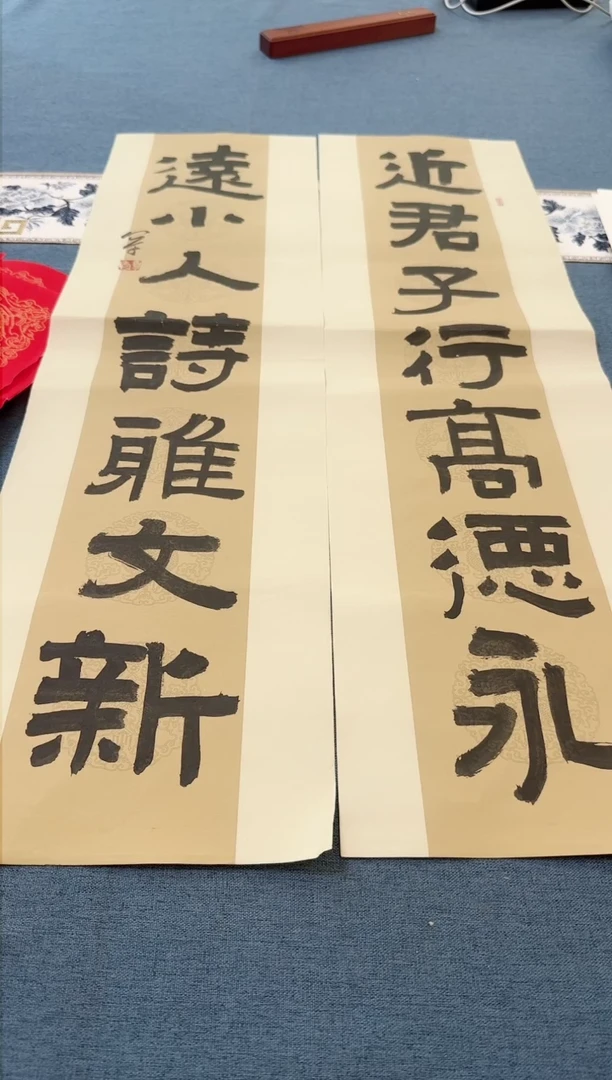 近君子行高德永
遠小人詩雅文新